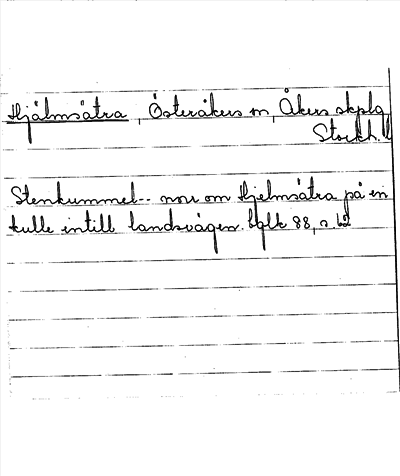 Hjälmsätra, Österåkers sn, Åkers skplg,
Stockh. l
Stenkummel-- norr om Hjelmsätra på en
kulle intill landsvägen. bglk 88, s. 62